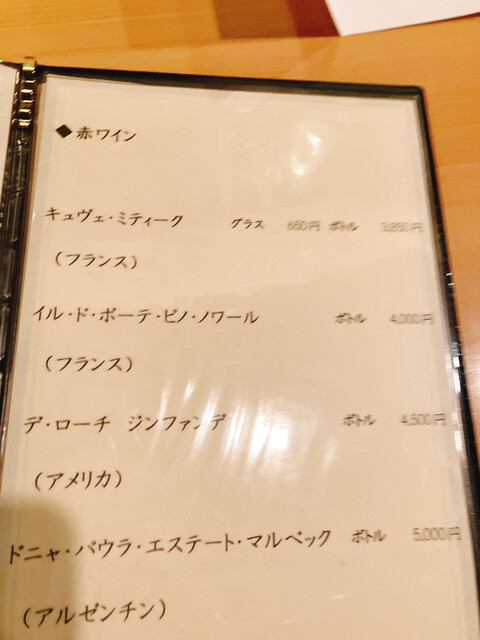 ◆赤ワイン
キュヴェ・ミティーク グラス 650円 ボトル 3,850円
（フランス）
イル・ド・ボーテ・ピノ・ノワール ボトル 4,000円
（フランス）
デ・ローチ ジンファンデ ボトル 4,500円
（アメリカ）
ドニャ・パウラ・エステート・マルベック ボトル 5,000円
（アルゼンチン）